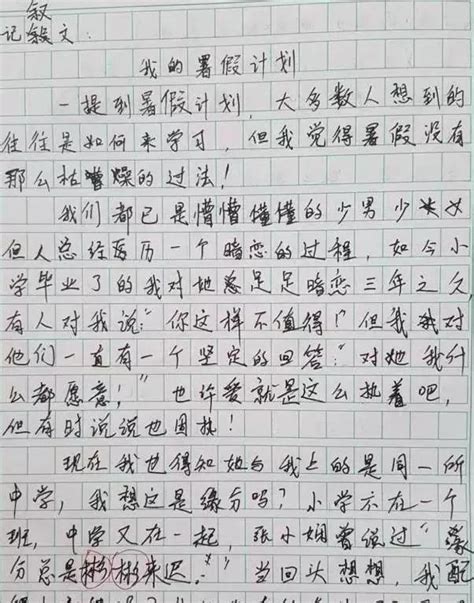 叙
记叙文:
我的暑假计划
一提到暑假计划,大多数人想到的
往往是如何来学习,但我觉得暑假没有
那么枯燥的过法!
我们都已是懵懵懂懂的少男少女
但人总经历一个暗恋的过程,如今小
学毕业了的我对她足足暗恋三年之久
有人对我说:“你这样不值得!”但我对
他们一直有一个坚定的回答:“对她我什
么都愿意!”也许爱就是这么执着吧,
但有时说说也固执!
现在我也得知她与我上的是同一所
中学,我想这是缘分吗?小学不在一个
班,中学又在一起,张小娴曾说过“缘
分总是彬彬来迟.”当回头想想,我配